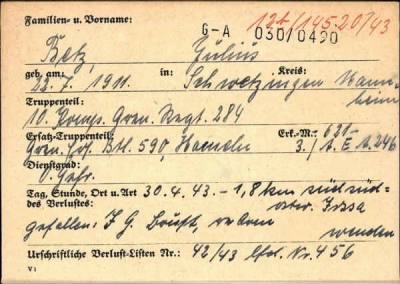 Familien- u. Vorname: 12t/145.20/43
G-A 030/0420
Betz, Julius
geb. am: in: Kreis:
23. 7. 1911. Schwetzingen Mann-
heim
Truppenteil:
10. Komp. Gren. Regt. 284
Ersatz-Truppenteil: Erk.-M.: 631-
Gren. Btl. 590, Hameln 3./ E 246
Dienstgrad:
O. Gefr.
Tag, Stunde, Ort u. Art 30. 4. 43. - 1,8 km südsüd-
des Verlustes: Issa
gefallen: J G
Urschriftliche Verlust-Listen Nr.: 42/43 lfd. Nr. 456
V 1